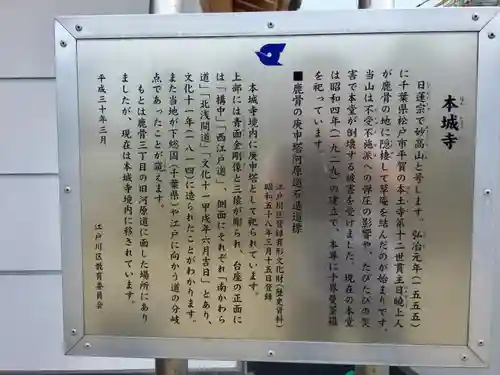 本城寺
ほんじょうじ
日蓮宗で妙高山と号します。弘治元年(一五五五)
に千葉県松戸市平賀の本土寺第十二世貫主日暁上人
が鹿骨の地に隠棲して草庵を結んだのが始まりです。
当山は不受不施派への弾圧の影響や、たびたびの災
害で本堂が倒壊する被害を受けました。現在の本堂
は昭和四年(一九二九)の建立で、本尊に十界曼荼羅
を祀っています。
■鹿骨の庚申塔河原道石造道標
江戸川区登録有形文化財(歴史資料)
昭和五十八年三月十五日登録
本城寺境内に庚申塔として祀られています。
上部には青面金剛像と三猿が彫られ、台座の正面に
は「構中」「西江戸道」、側面にそれぞれ「南かわら
道」「北浅間道」「文化十一甲戌年六月吉日」とあり、
文化十一年(一八一四)に造られたことがわかります。
また当地が下総国(千葉県)や江戸に向かう道の分岐
点であったことが窺えます。
もとは鹿骨三丁目の旧河原道に面した場所にあり
ましたが、現在は本城寺境内に移されています。
平成三十年三月
江戸川区教育委員会